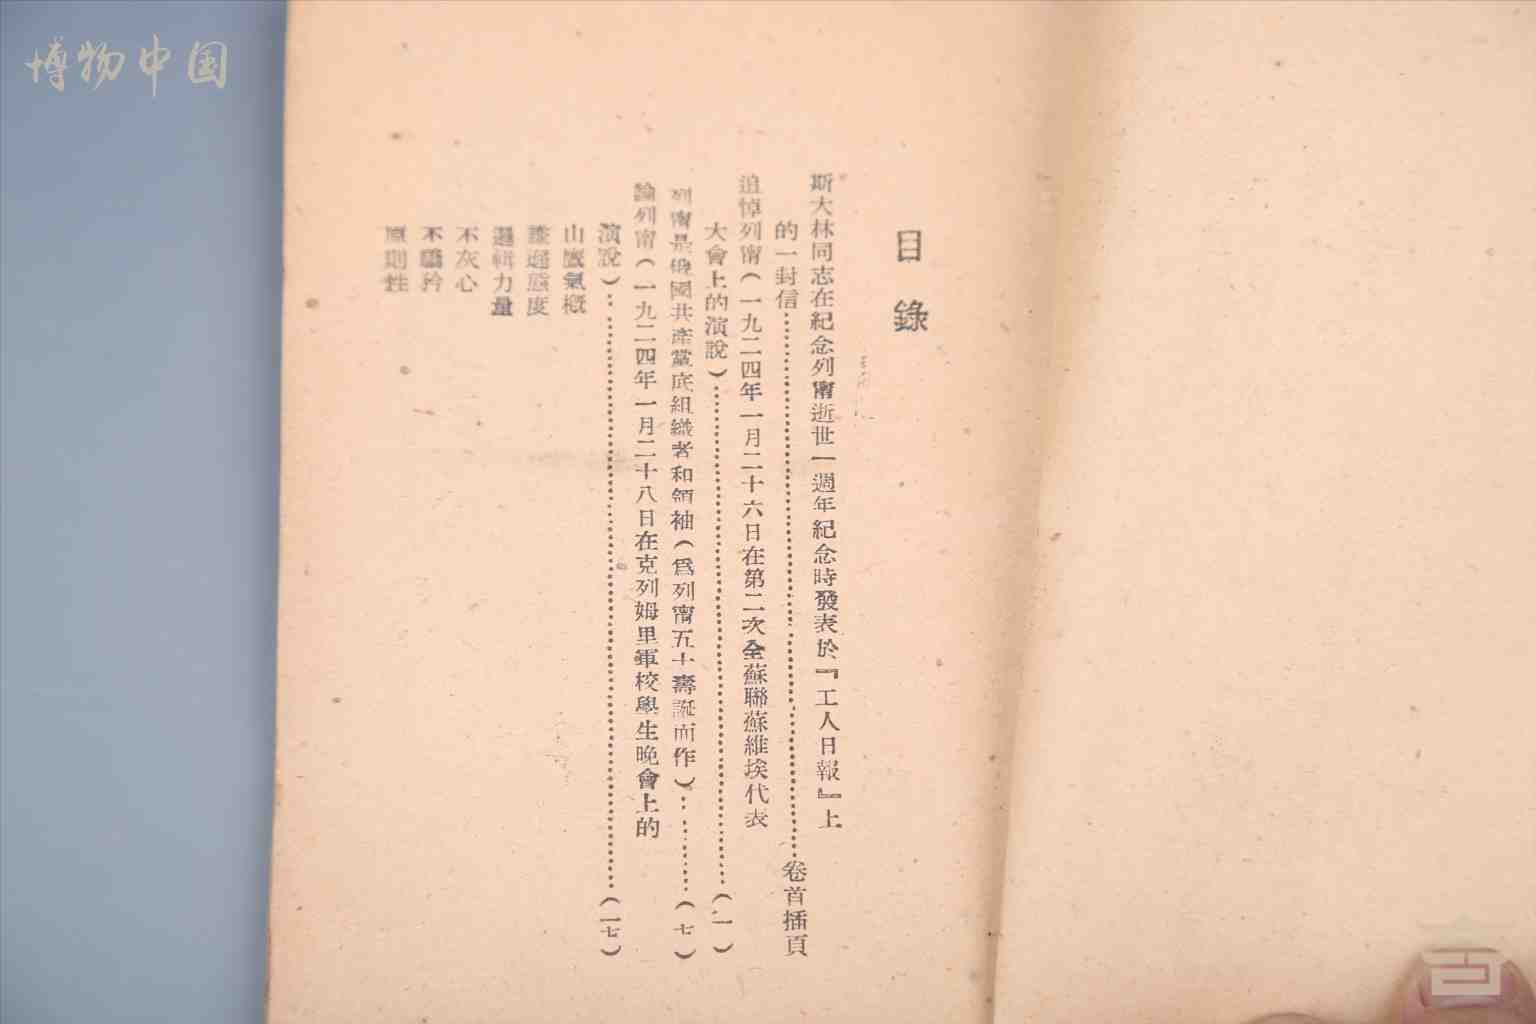 博物中国
目錄
斯大林同志在紀念列甯逝世一週年紀念時發表於『工人日報』上
的一封信……卷首插頁
追悼列甯(一九二四年一月二十六日在第二次全蘇聯蘇維埃代表
大會上的演說)……(一)
列甯是俄國共產黨底組織者和領袖(爲列甯五十壽誕而作)……(七)
論列甯(一九二四年一月二十八日在克列姆里軍校學生晚會上的
演說)……(一七)
山鷹氣概
謙遜態度
邏輯力量
不灰心
不驕矜
原則性